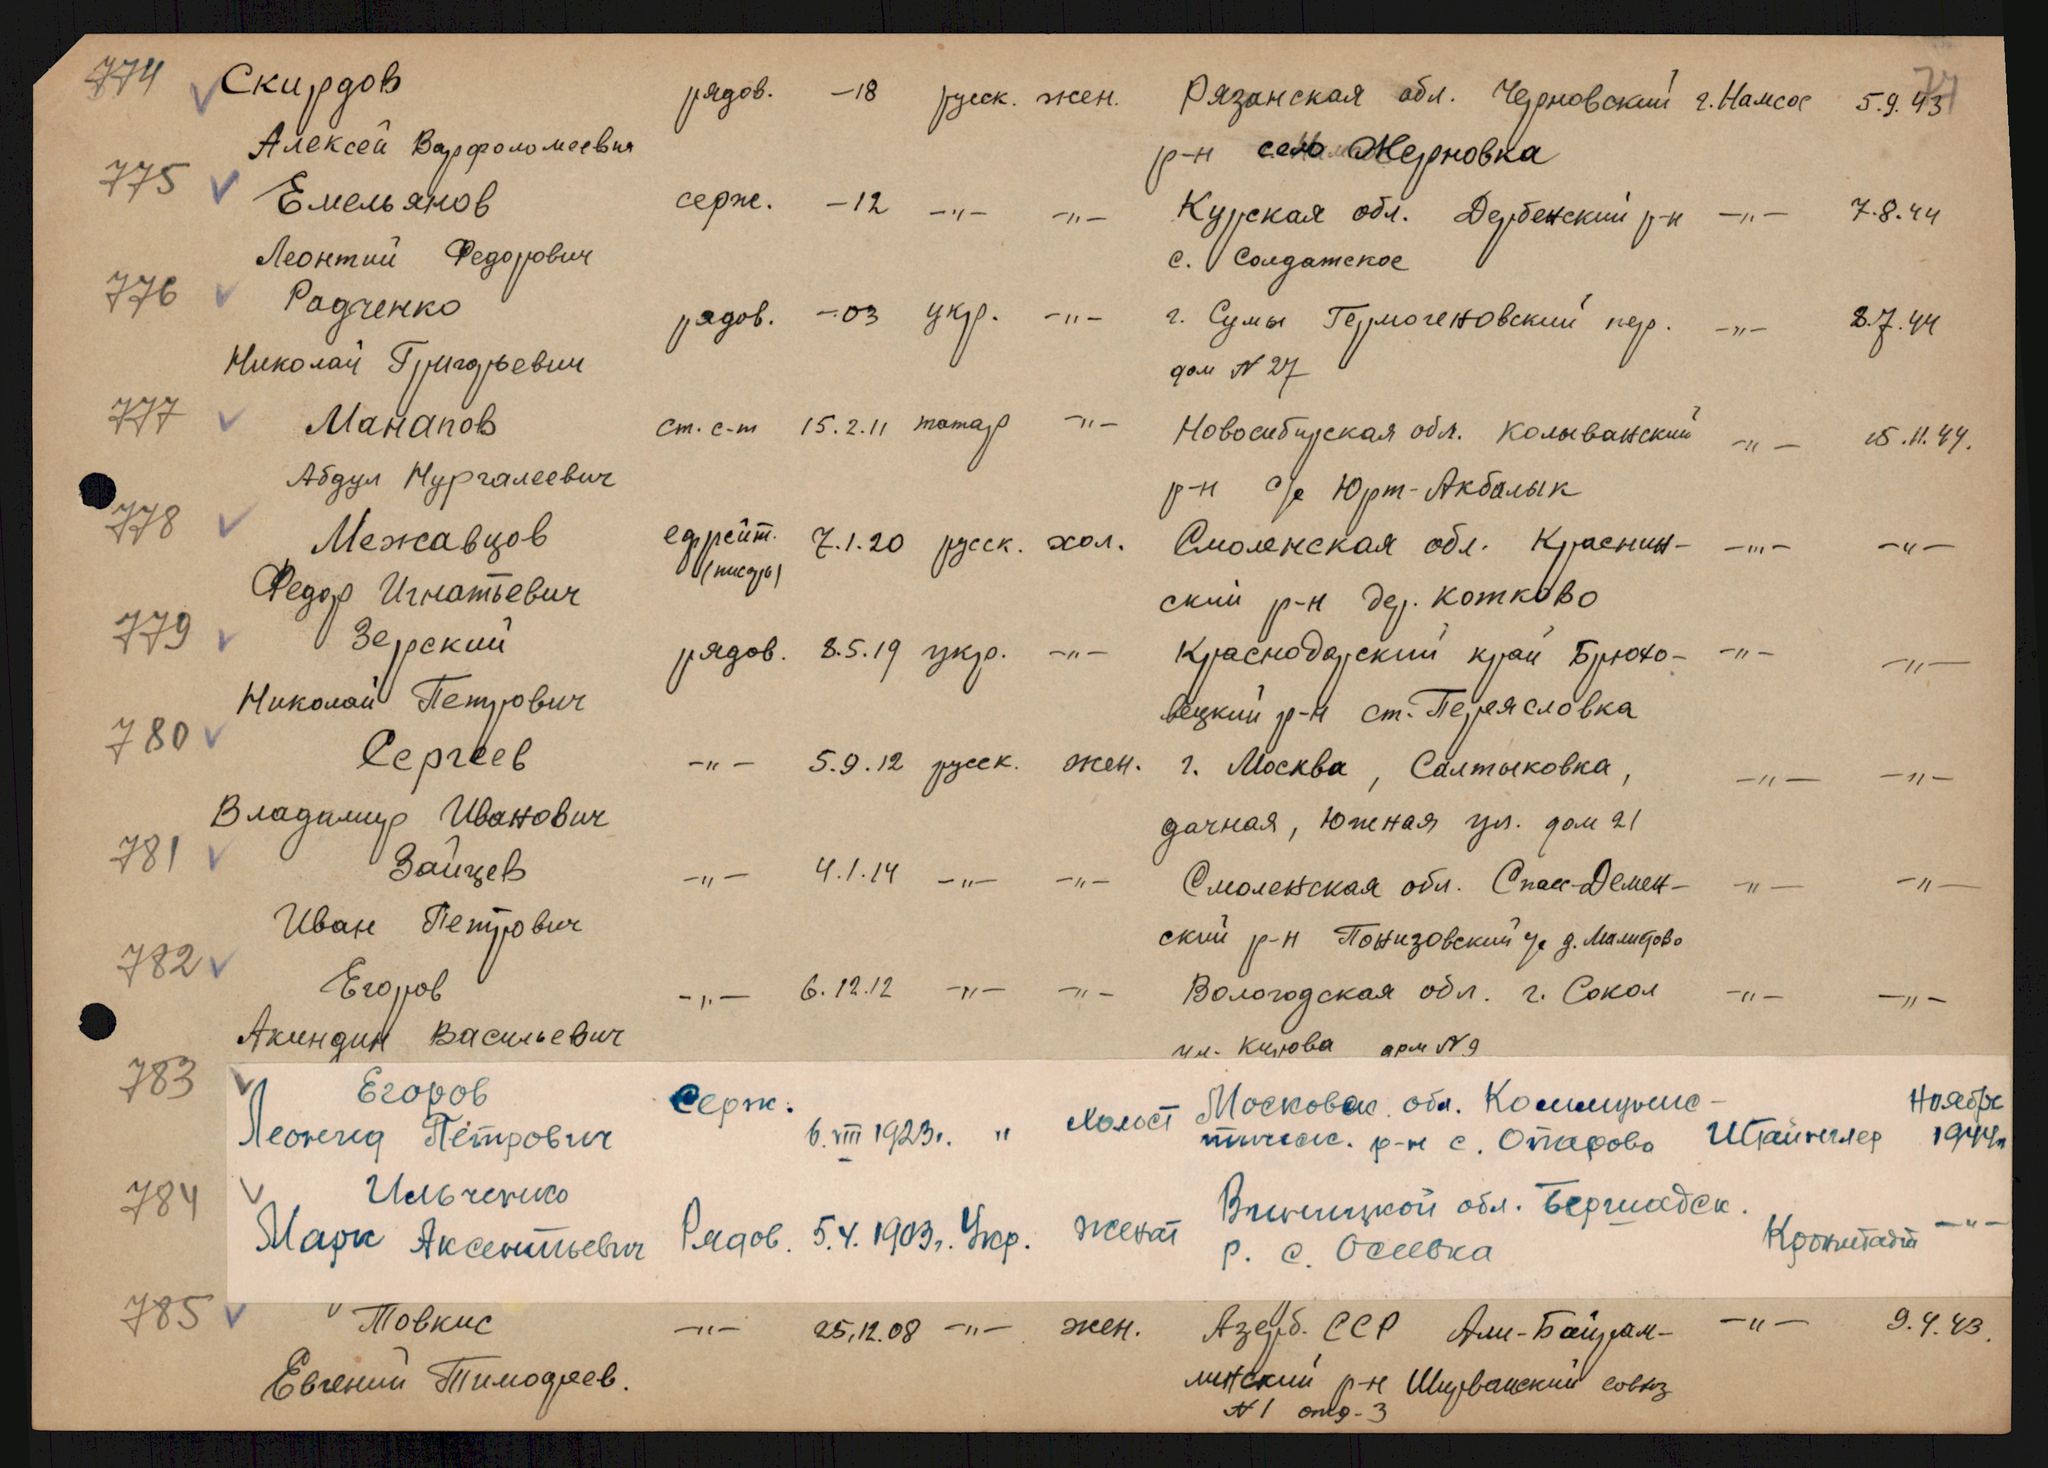 774 Скирдов рядов. -18 русск. жен. Рязанская обл. Черновский г. Намсос 5.9.43
Алексей Варфоломеевич р-н село Жерновка
775 Емельянов серж. -12 -„- -„- Курская обл. Дербенский р-н -„- 7.8.44
Леонтий Федорович с. Солдатское
776 Радченко рядов. -03 укр. -„- г. Сумы Гермогеновский пер. -„- 8.7.44
Николай Григорьевич дом N 27
777 Манапов ст. с-т 15.2.11 татар -„- Новосибирская обл. Колыванский -„- 15.11.44.
Абдул Нургалеевич р-н с/с Юрт-Акбалык
778 Межавцов ефрейт. 7.1.20 русск. хол. Смоленская обл. Краснин- -„- -„-
(писарь)
Федор Игнатьевич ский р-н дер. Котково
779 Зерский рядов. 8.5.19 укр. -„- Краснодарский край Брюхо- -„- -„-
Николай Петрович вецкий р-н ст. Переясловка
780 Сергеев -„- 5.9.12 русск. жен. г. Москва, Салтыковка, -„- -„-
Владимир Иванович дачная, Южная ул. дом 21
781 Зайцев -„- 4.1.14 -„- -„- Смоленская обл. Спас-Демен- -„- -„-
Иван Петрович ский р-н Понизовский с/с д.
782 Егоров -„- 6.12.12 -„- -„- Вологодская обл. г. Сокол -„- -„-
Акиндин Васильевич ул. Кирова дом N 9
783 Егоров Серж. Московск. обл. Коммунис- Ноябрь
Леонид Петрович 6.VIII 1923г. „ Холост тическ. р-н с. Опарово Штайнглер 1944г
784 Ильченко Винницкой обл. Бершадск.
Марк Аксентьевич Рядов. 5.4.1903г. Укр. женат р. с. Осиевка Кронштадт -„-
785 Товкис -„- 25.12.08 -„- жен. Азерб. ССР Али-Байрам- -„- 9.4.43.
Евгений Тимофеев. линский р-н Ширванский совхоз
N 1 отд-3